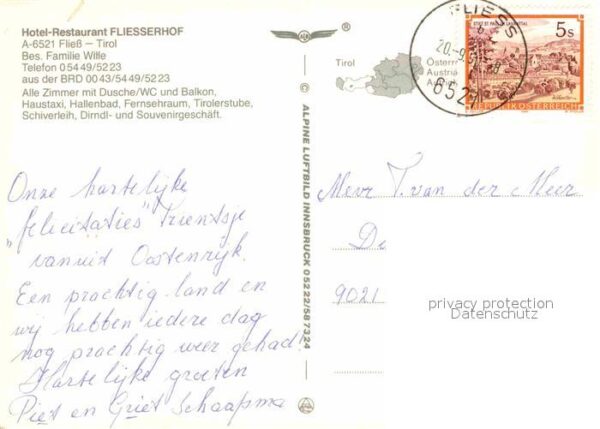 Hotel-Restaurant FLIESSERHOF
A-6521 Fließ – Tirol
Bes. Familie Wille
Telefon 05449/5223
aus der BRD 0043/5449/5223
Alle Zimmer mit Dusche/WC und Balkon,
Haustaxi, Hallenbad, Fernsehraum, Tirolerstube,
Schiverleih, Dirndl- und Souvenirgeschäft.
Onze hartelijke
"felicitaties" Trientsje
vanuit Oostenrijk.
Een prachtig land en
wij hebben iedere dag
nog prachtig weer gehad!
Hartelijke groeten
Piet en Griet Schaapma
© ALPINE LUFTBILD INNSBRUCK 05222/587324
Tirol
Österr
Austria
A
FLIESS
20.-9.
6521
STIFT ST. PAUL IM LAVANTTAL
5s
REPUBLIK ÖSTERREICH
Mevr T. van der Meer
De
9021
privacy protection
Datenschutz